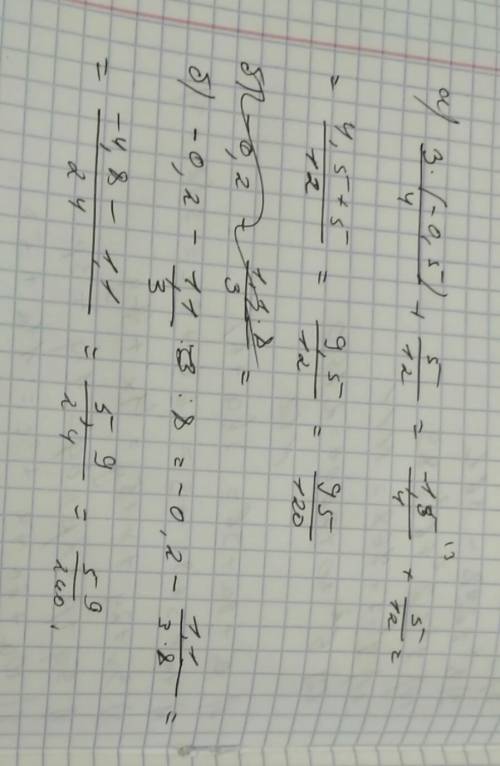 а) 3·(-0,5)/4 + 5/12 = -1,5/4 + 5/12 =
= 4,5+5/12 = 9,5/12 = 95/120
б) -0,2 - 1,1/3 : 8 = -0,2 - 1,1/3·8 =
= -4,8-1,1/24 = 5,9/24 = 59/240.